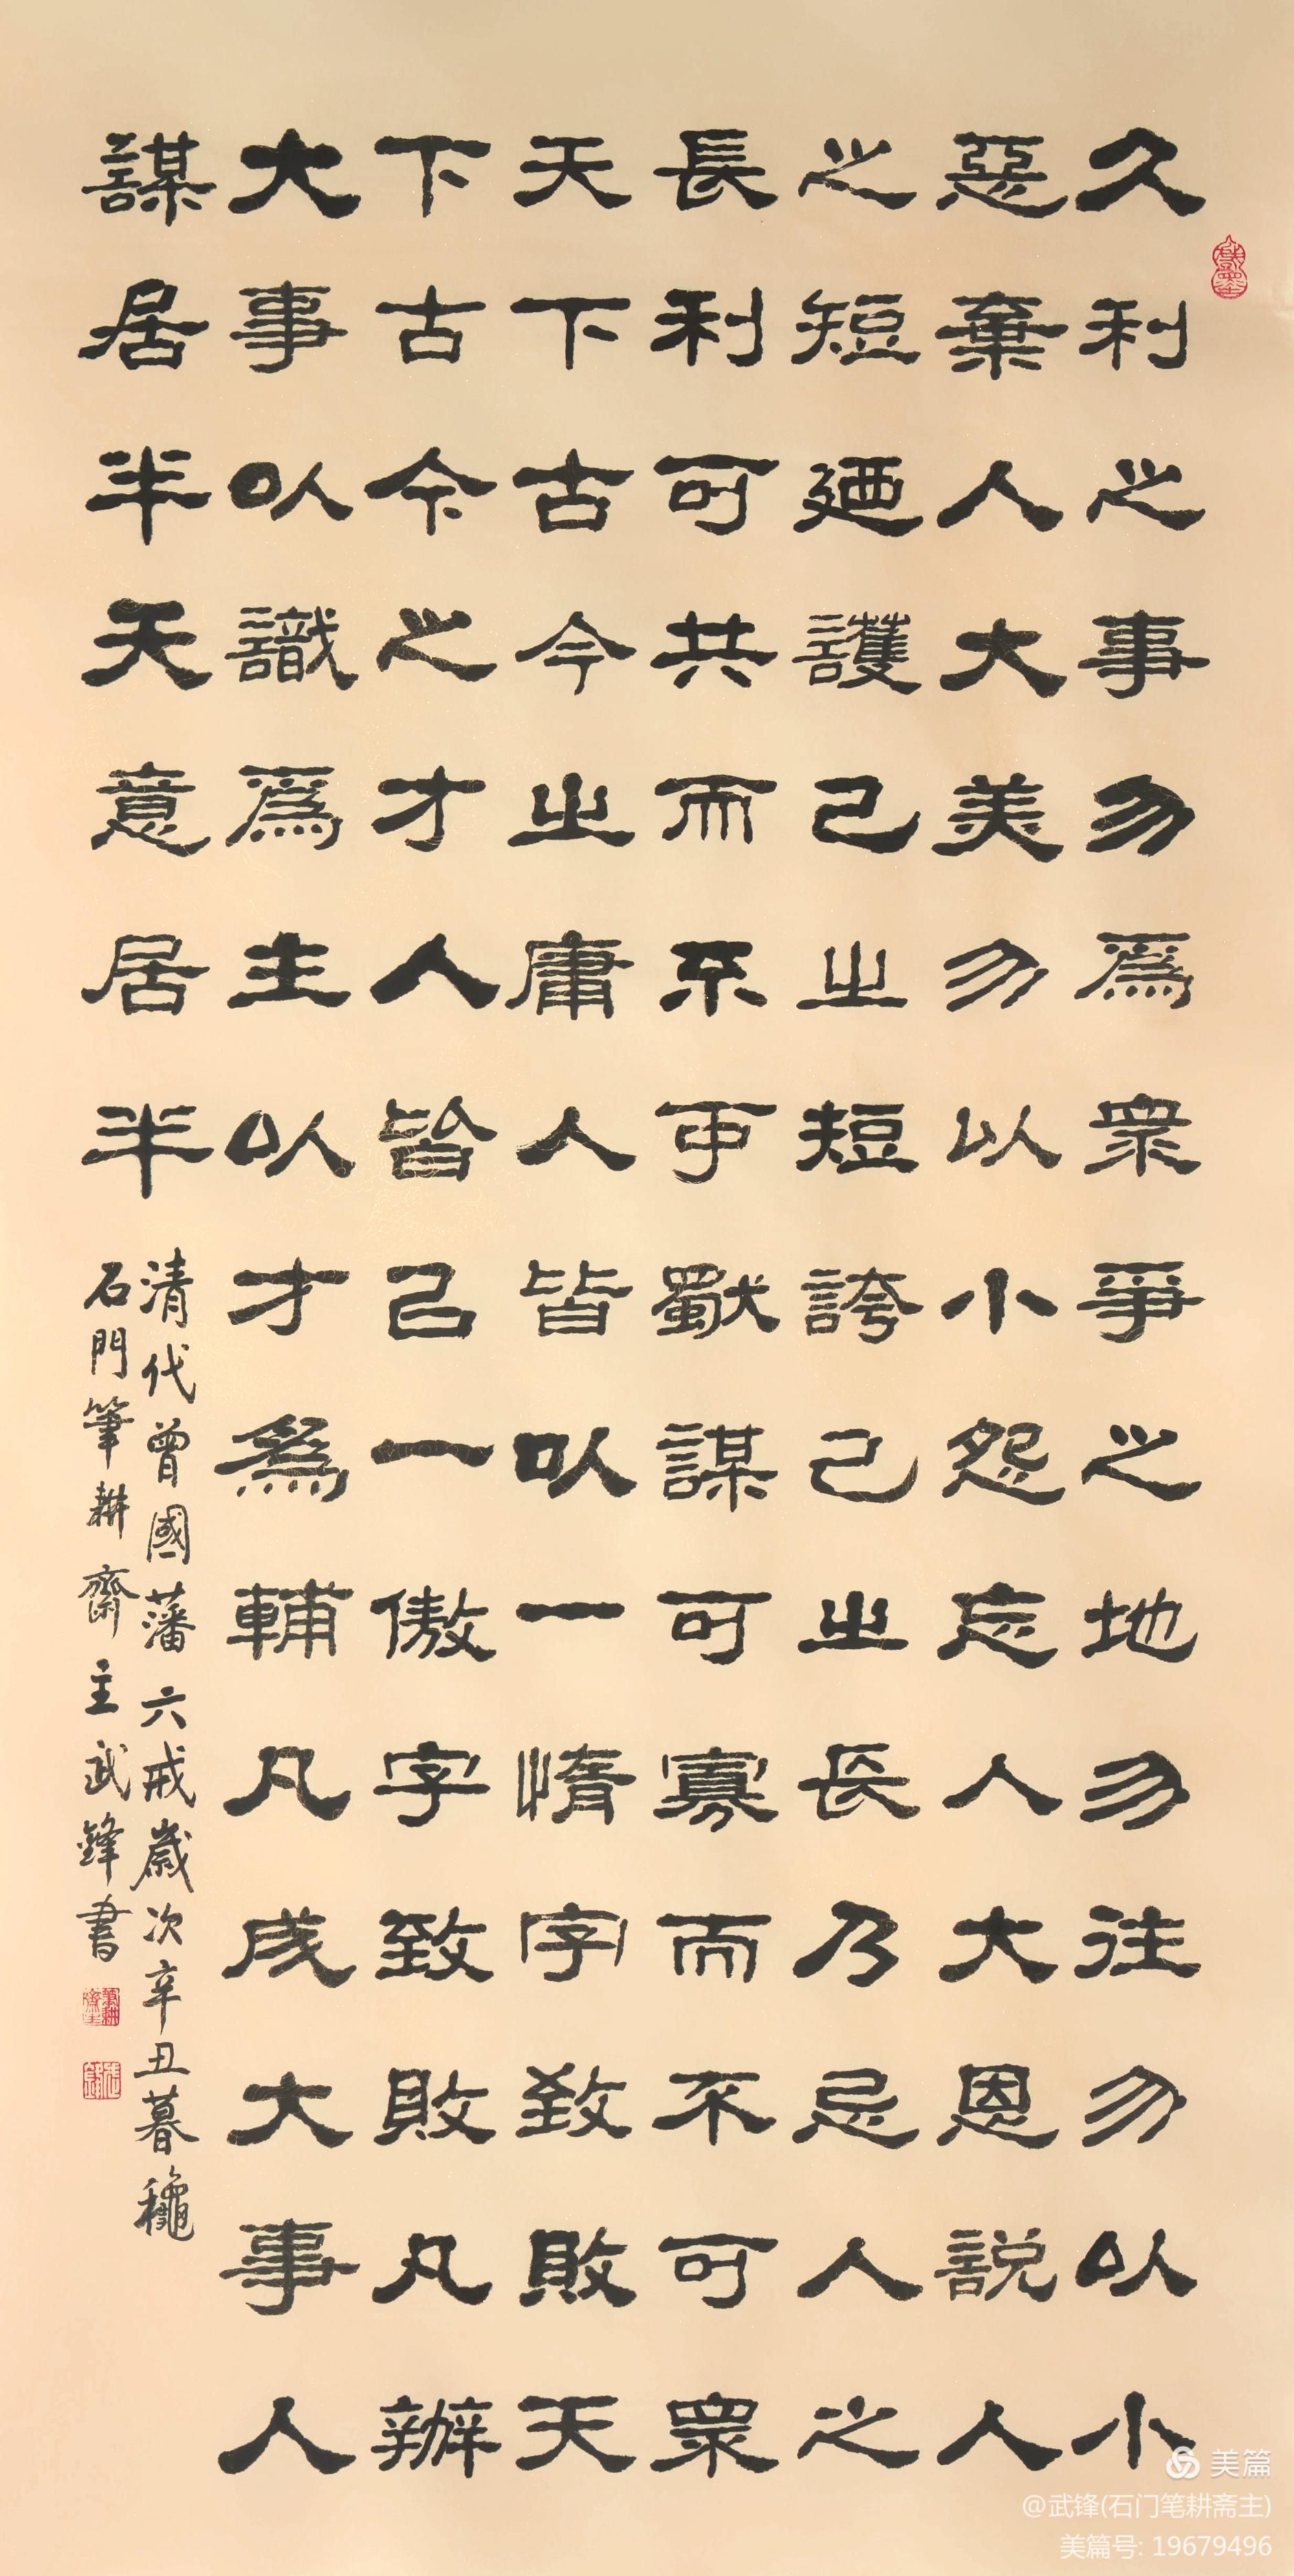 久利之事勿爲衆爭之地勿往勿以小
惡棄人大美勿以小怨忘人大恩説人
之短廼護己之短誇己之長乃忌人之
長利可共而不可獨謀可寡而不可衆
天下古今之庸人皆以一惰字致敗天
下古今之才人皆㠯一傲字致敗凡辦
大事以識爲主以才爲輔凡成大事人
謀居半天意居半
清代曾國藩六戒歲次辛丑暮穐
石門筆耕齋主武鋒書
美篇
@武锋(石门笔耕斋主)
美篇号: 19679496